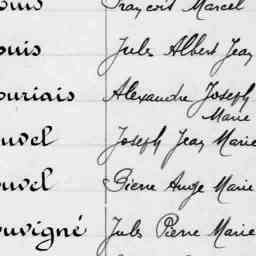 ouis François Marcel
ouis Jules Albert Jean
ouriais Alexandre Joseph
Marie
ouvel Joseph Jean Marie
ouvel Pierre Ange Marie
ouvigné Jules Pierre Marie